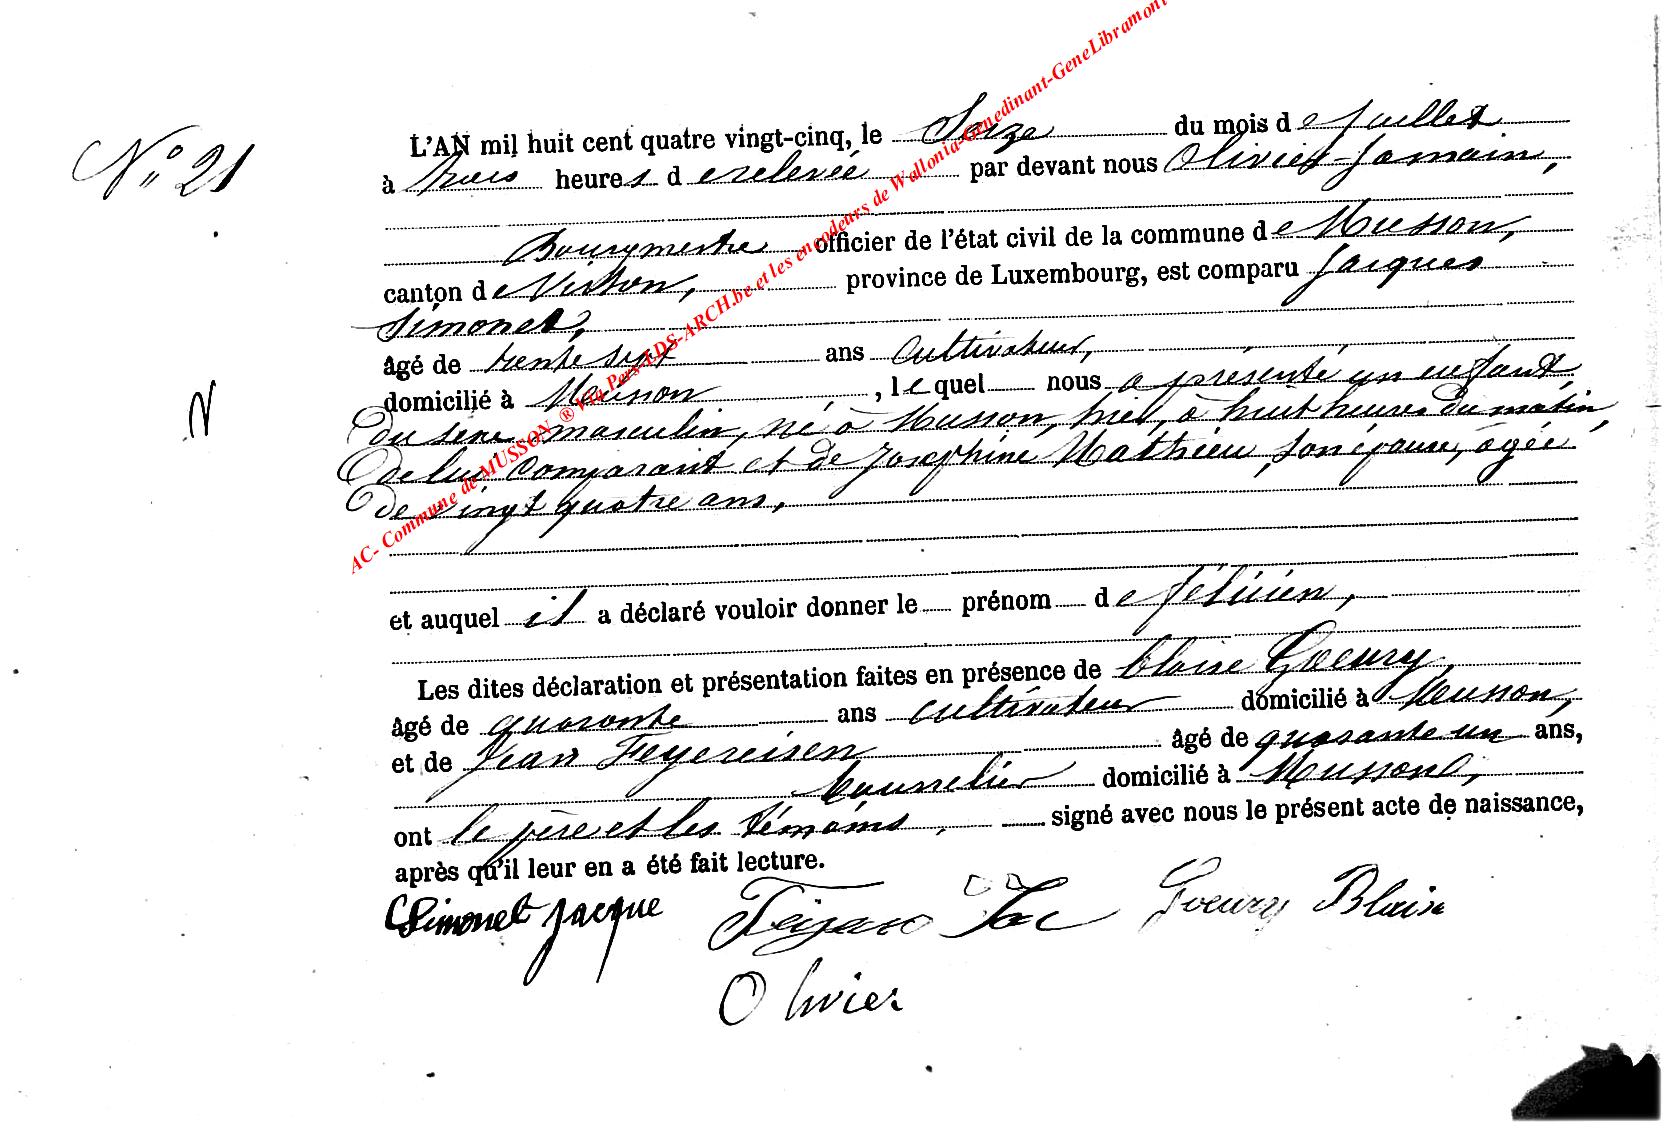 N° 21
L'AN mil huit cent quatre vingt-cinq, le Seize du mois de Juillet
à trois heures de relevée par devant nous Olivier-Jamain,
Bourgmestre officier de l'état civil de la commune de Musson,
canton de Virton, province de Luxembourg, est comparu Jacques
Simonet,
âgé de trente sept ans cultivateur,
domicilié à Musson, lequel nous a présenté un enfant
du sexe masculin, né à Musson, hier, à huit heures du matin,
de lui comparant et de Joséphine Mathieu, son épouse, âgée
de vingt quatre ans,
N
et auquel il a déclaré vouloir donner le prénom de félicien,
Les dites déclaration et présentation faites en présence de blaise Goeury,
âgé de quarante ans cultivateur domicilié à Musson,
et de Jean Feyereisen âgé de quarante un ans,
bourrelier domicilié à Musson,
ont le père et les témoins, signé avec nous le présent acte de naissance,
après qu'il leur en a été fait lecture.
Simonet Jacque Goeury Blaise
Olivier
AC- Commune de MUSSON ® Via Pers-LDS-ARCH.be et les encodeurs de Wallonia-Genedinant-GeneLibramont